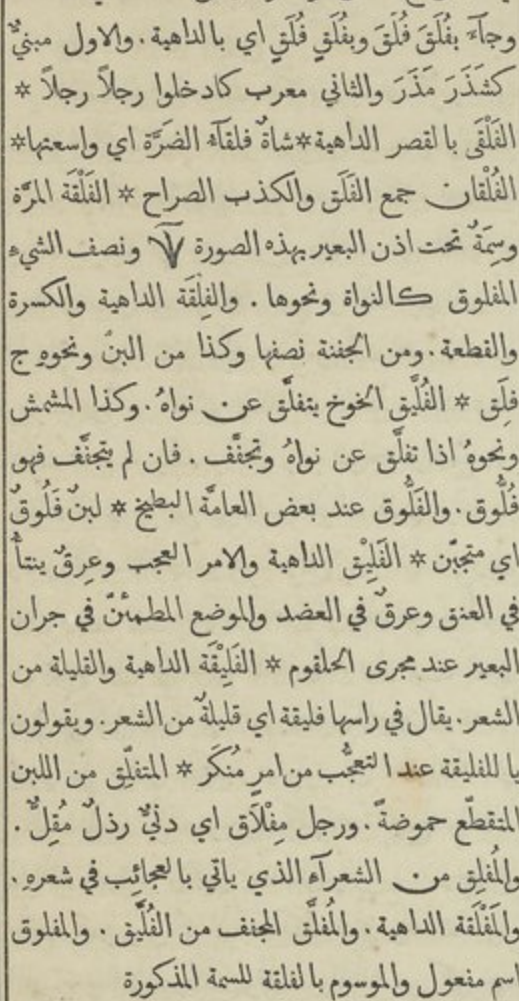 وجآءَ بفُلَقَ فُلَقَ وبفُلَقٍ فُلَقٍ اي بالداهية. والاول مبنيٌّ
كشَذَرَ مَذَرَ والثاني معرب كادخلوا رجلاً رجلاً *
الفَلْقَى بالقصر الداهية*شاةٌ فلقآءُ الضَرَّة اي واسعتها*
الفُلْقان جمع الفَلَق والكذب الصراح * الفَلْقَة المرَّة
وسِمَةٌ تحت اذن البعير بهذه الصورة ونصف الشيءِ
المفلوق كالنواة ونحوها. والفِلْقَة الداهية والكسرة
والقطعة. ومن الجفنة نصفها وكذا من البنُّ ونحوهِ ج
فِلَق * الفُلَّيق الخوخ يتفلَّق عن نواهُ. وكذا المشمش
ونحوهُ اذا تفلَّق عن نواهُ وتجفَّف. فان لم يتجفَّف فهو
فُلُّوق. والفَلُّوق عند بعض العامَّة البطيخ * لبنٌ فَلُوقٌ
اي متجبّن * الفَلِيْق الداهية والامر العجب وعِرقٌ ينتأُ
في العنق وعرقٌ في العضد والموضع المطمئنّ في جران
البعير عند مجرى الحلقوم * الفَلِيْقَة الداهية والقليلة من
الشعر. يقال في راسها فليقة اي قليلةٌ من الشعر. ويقولون
يا للفليقة عند التعجُّب من امرٍ مُنكَر * المتفلِّق من اللبن
المتقطّع حموضةً. ورجل مِفْلاَق اي دنيٌّ رذلٌ مُقِلٌّ.
والمُفلِق من الشعرآءِ الذي ياتي بالعجائِب في شعرهِ.
والمَفْلَقة الداهية. والمُفلَّق المجفف من الفُلَّيق. والمفلوق
اسم مفعول والموسوم بالفلقة للسمة المذكورة